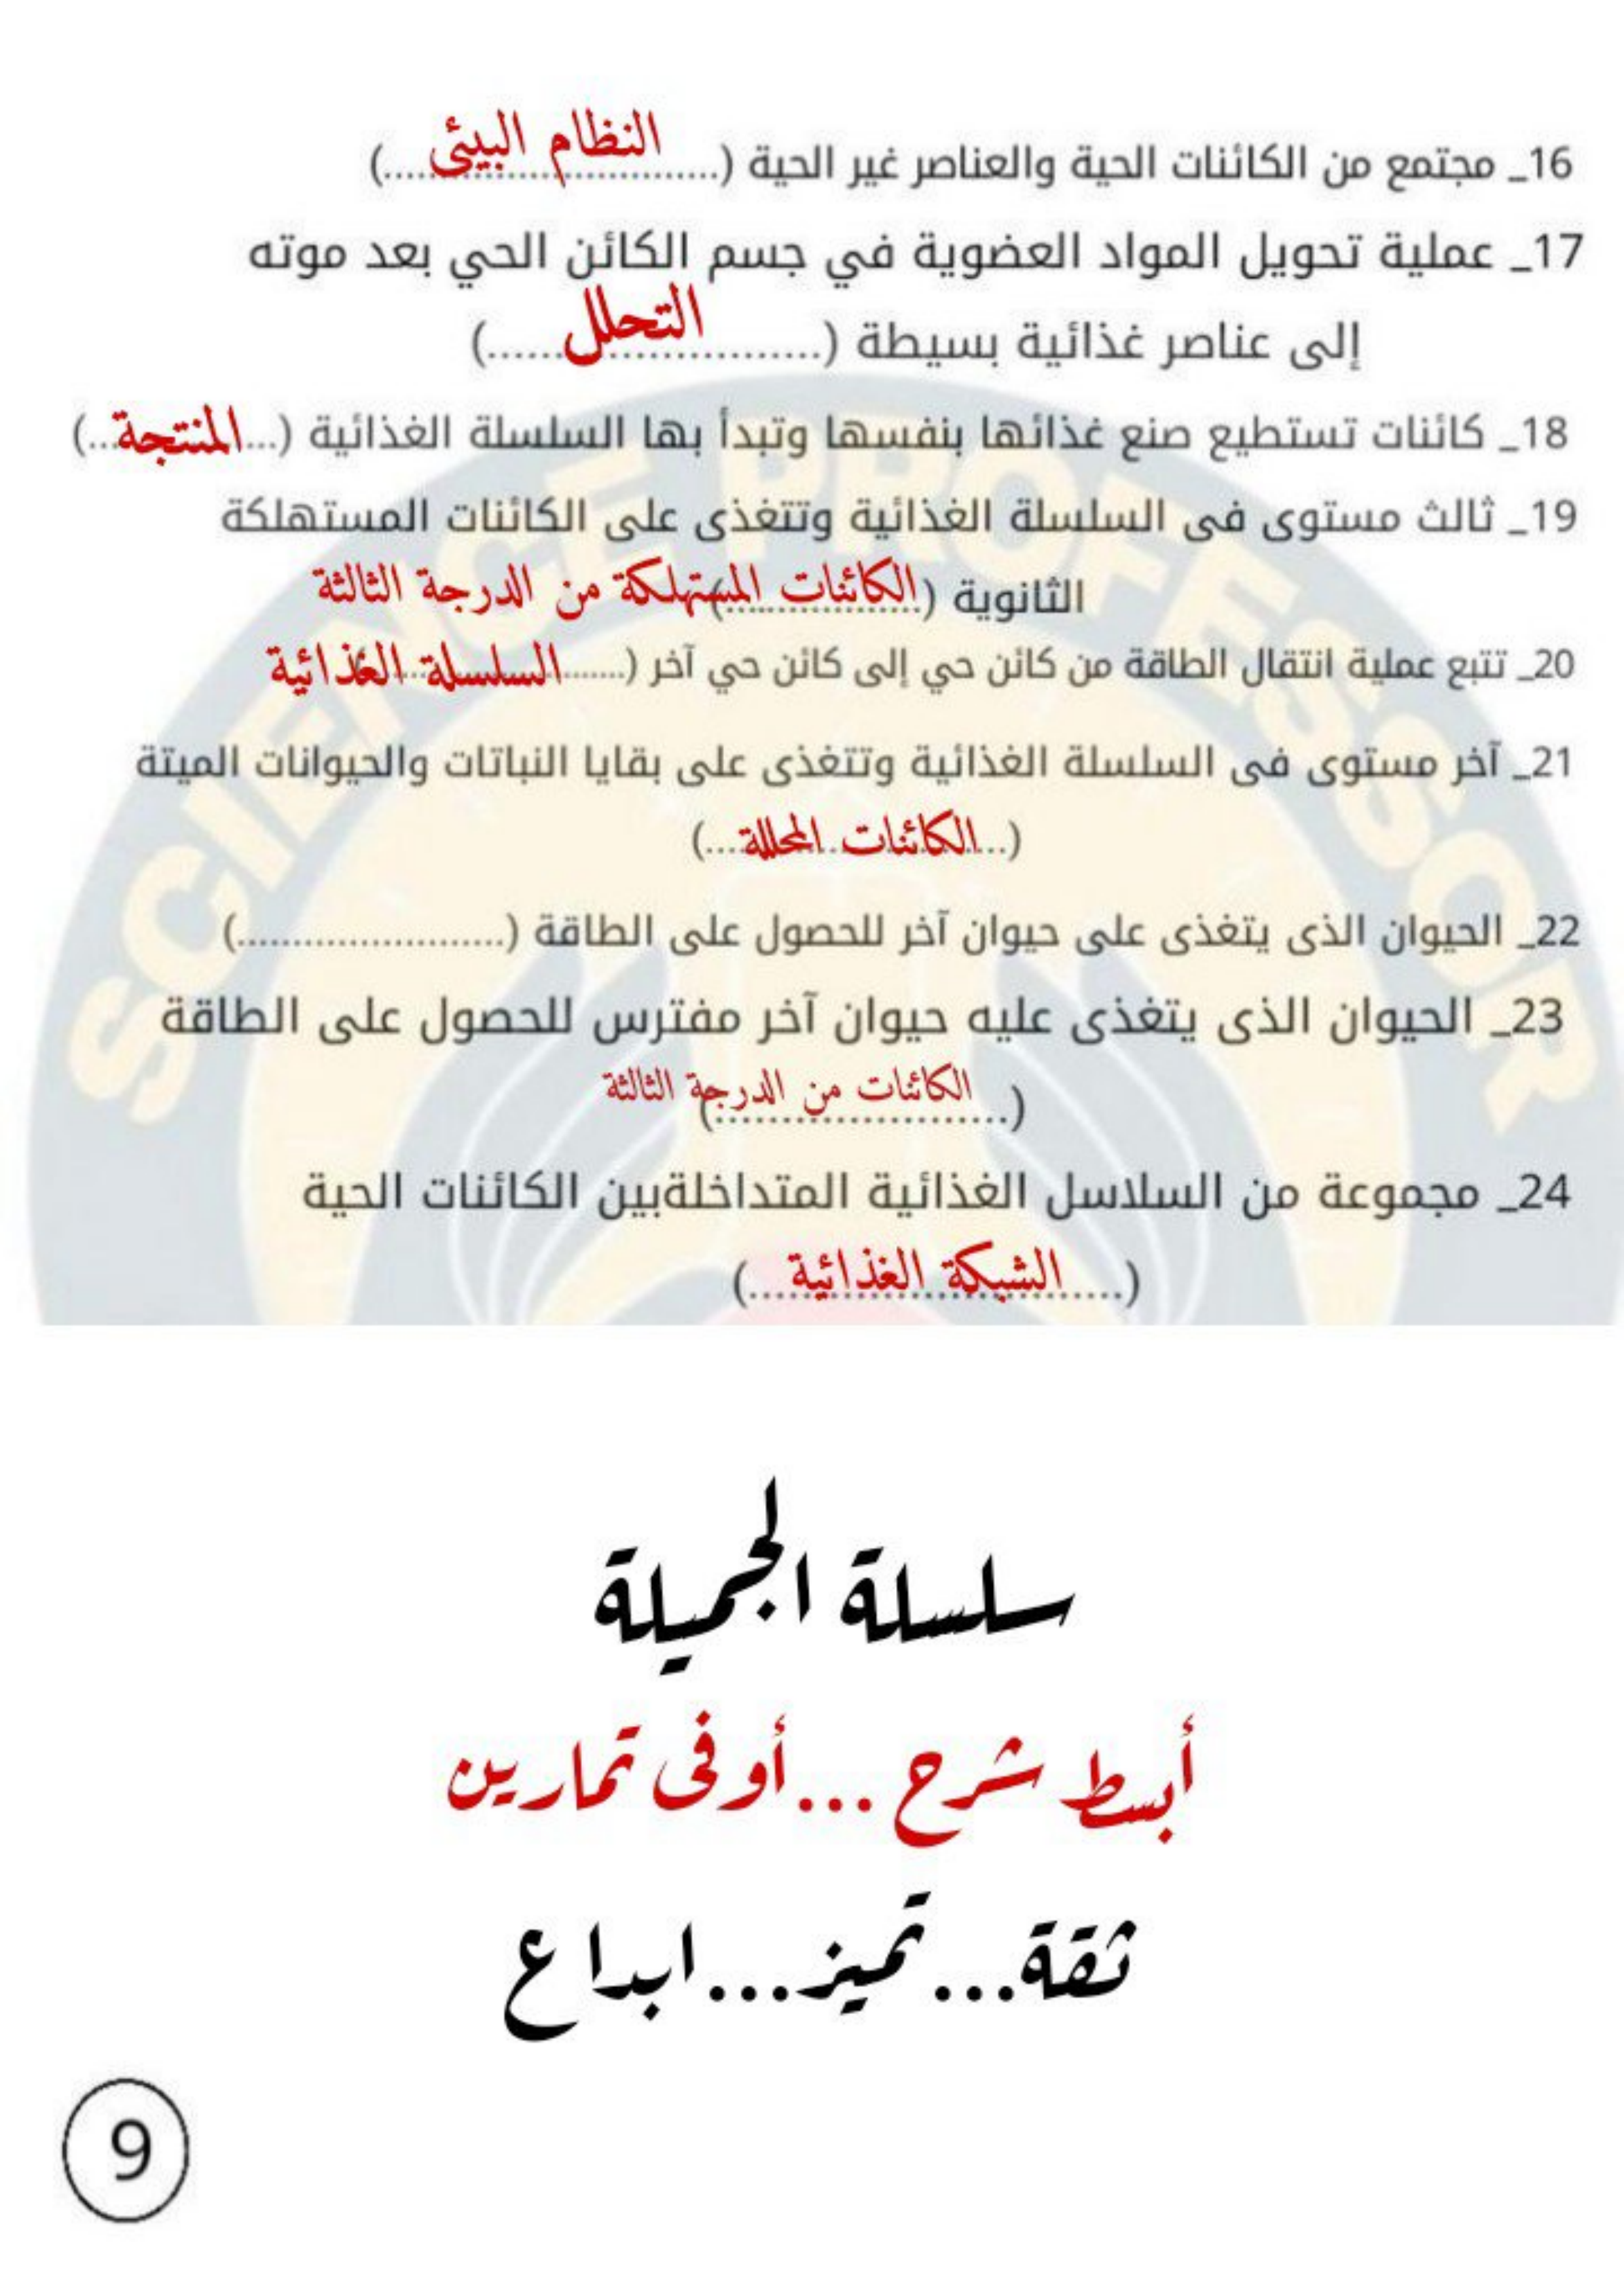 16_ مجتمع من الكائنات الحية والعناصر غير الحية (....النظام البيئى....)
17_ عملية تحويل المواد العضوية في جسم الكائن الحي بعد موته
إلى عناصر غذائية بسيطة (....التحلل....)
18_ كائنات تستطيع صنع غذائها بنفسها وتبدأ بها السلسلة الغذائية (...المنتجة...)
19_ ثالث مستوى فى السلسلة الغذائية وتتغذى على الكائنات المستهلكة
الثانوية (الكائنات المستهلكة من الدرجة الثالثة)
20_ تتبع عملية انتقال الطاقة من كائن حي إلى كائن حي آخر (......السلسلة الغذائية
21_ آخر مستوى فى السلسلة الغذائية وتتغذى على بقايا النباتات والحيوانات الميتة
(...الكائنات المحللة....)
22_ الحيوان الذى يتغذى على حيوان آخر للحصول على الطاقة (........................)
23_ الحيوان الذى يتغذى عليه حيوان آخر مفترس للحصول على الطاقة
(الكائنات من الدرجة الثالثة)
24_ مجموعة من السلاسل الغذائية المتداخلةبين الكائنات الحية
(.....الشبكة الغذائية...)
SCIENCE PROFESSOR
سلسلة الجميلة
أبسط شرح ...أوفى تمارين
ثقة...تميز...ابداع
9